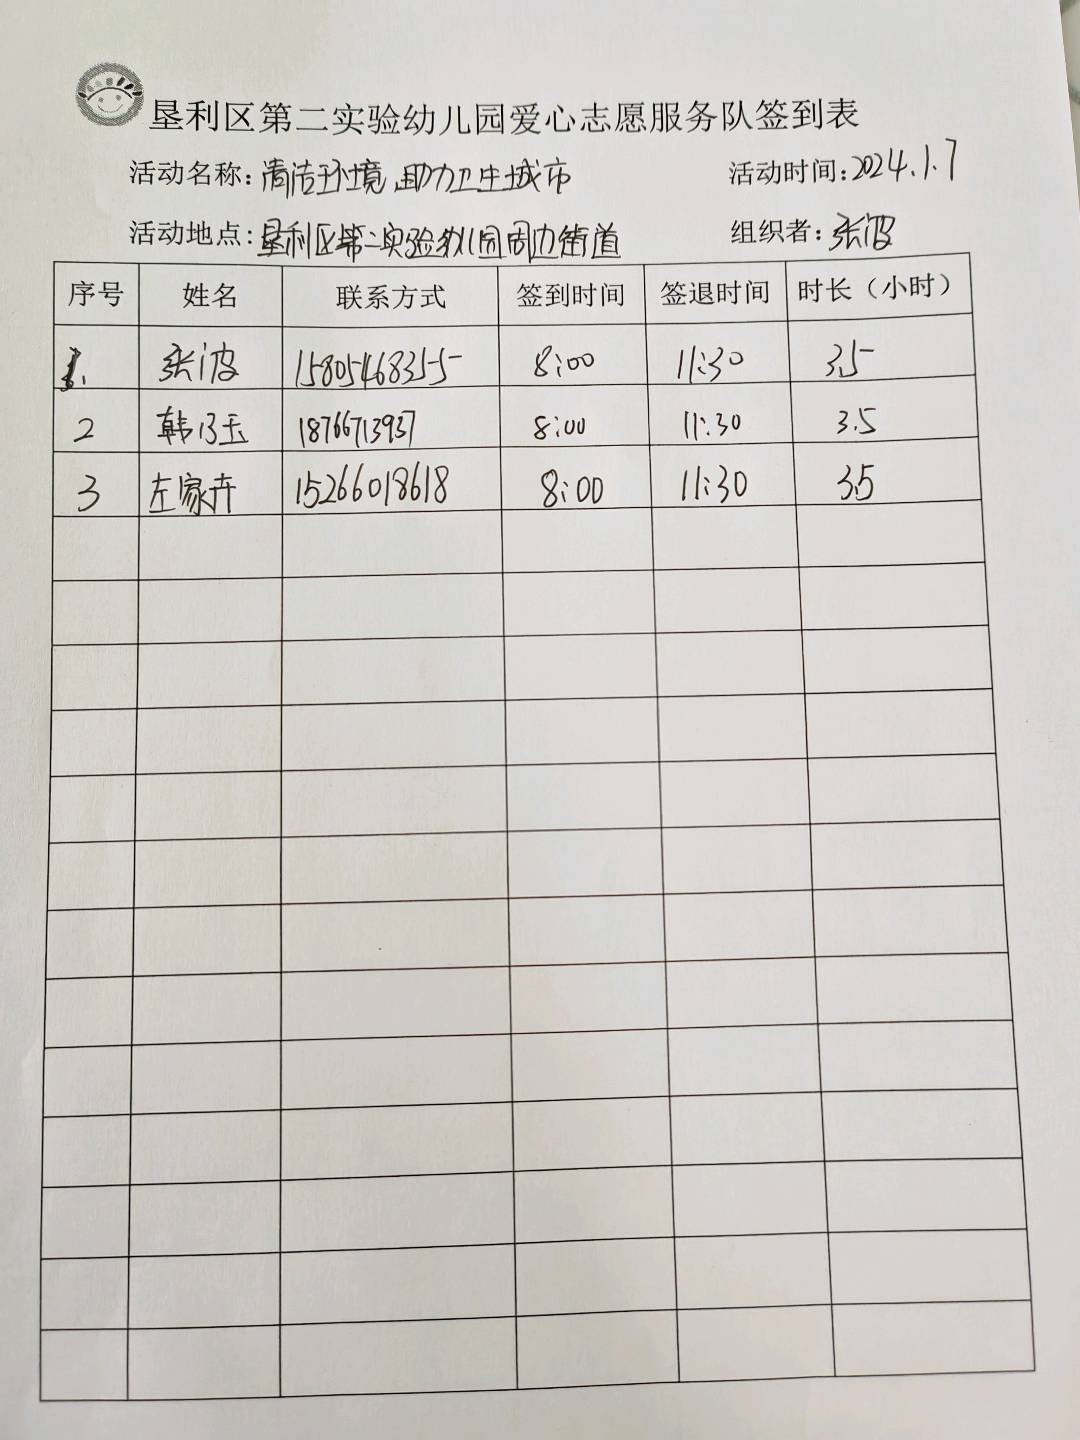 垦利区第二实验幼儿园爱心志愿服务队签到表
活动名称：清洁环境,助力卫生城市 活动时间：2024.1.7
活动地点：垦利区第二实验幼儿园周边街道 组织者：张波
序号 姓名 联系方式 签到时间 签退时间 时长（小时）
1. 张波 15805468355 8:00 11:30 3.5
2 韩乃玉 18766713937 8:00 11:30 3.5
3 左家卉 15266018618 8:00 11:30 3.5